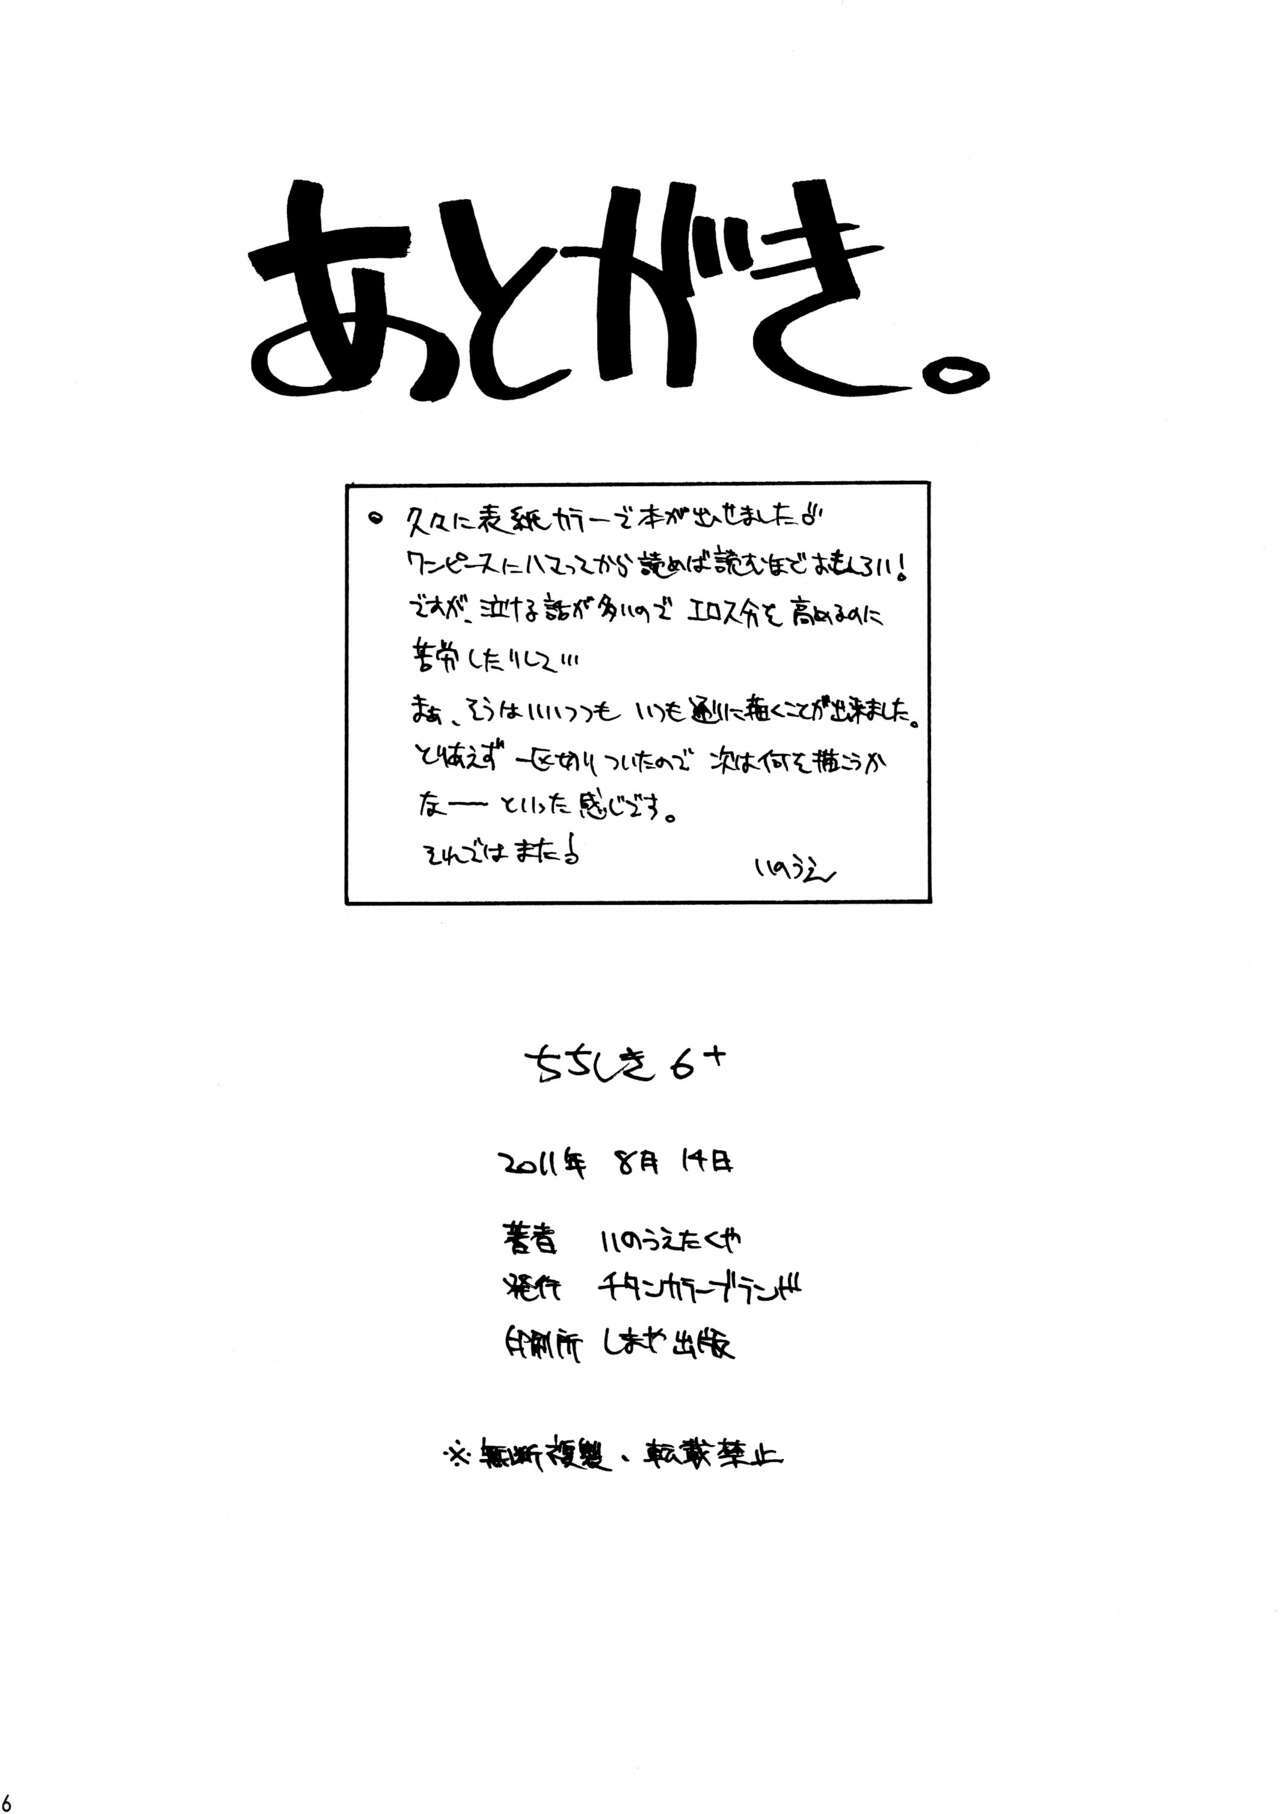 あとがき。
• 久々に表紙カラーで本が出せました♪
ワンピースにハマってから読めば読むほどおもしろい!
ですが、泣ける話が多いので エロス分を高めるのに
苦労したりして…
まぁ、そうはいいつつも いつも通りに描くことが出来ました。
とりあえず 一区切りついたので 次は何を描こうか
なーー といった感じです。
それではまた♪
いのうえ
ちちしき 6+
2011年 8月 14日
著者 いのうえたくや
発行 チタンカラーブランド
印刷所 しまや出版
※無断複製、転載禁止
6